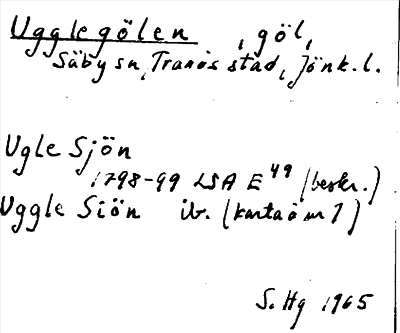 Ugglegölen, göl,
Säby sn, Tranås stad, Jönk.l.
Ugle Sjön
1798-99 LSA E49 (beskr.)
Uggle Siön ib. (karta
S. Hg 1965